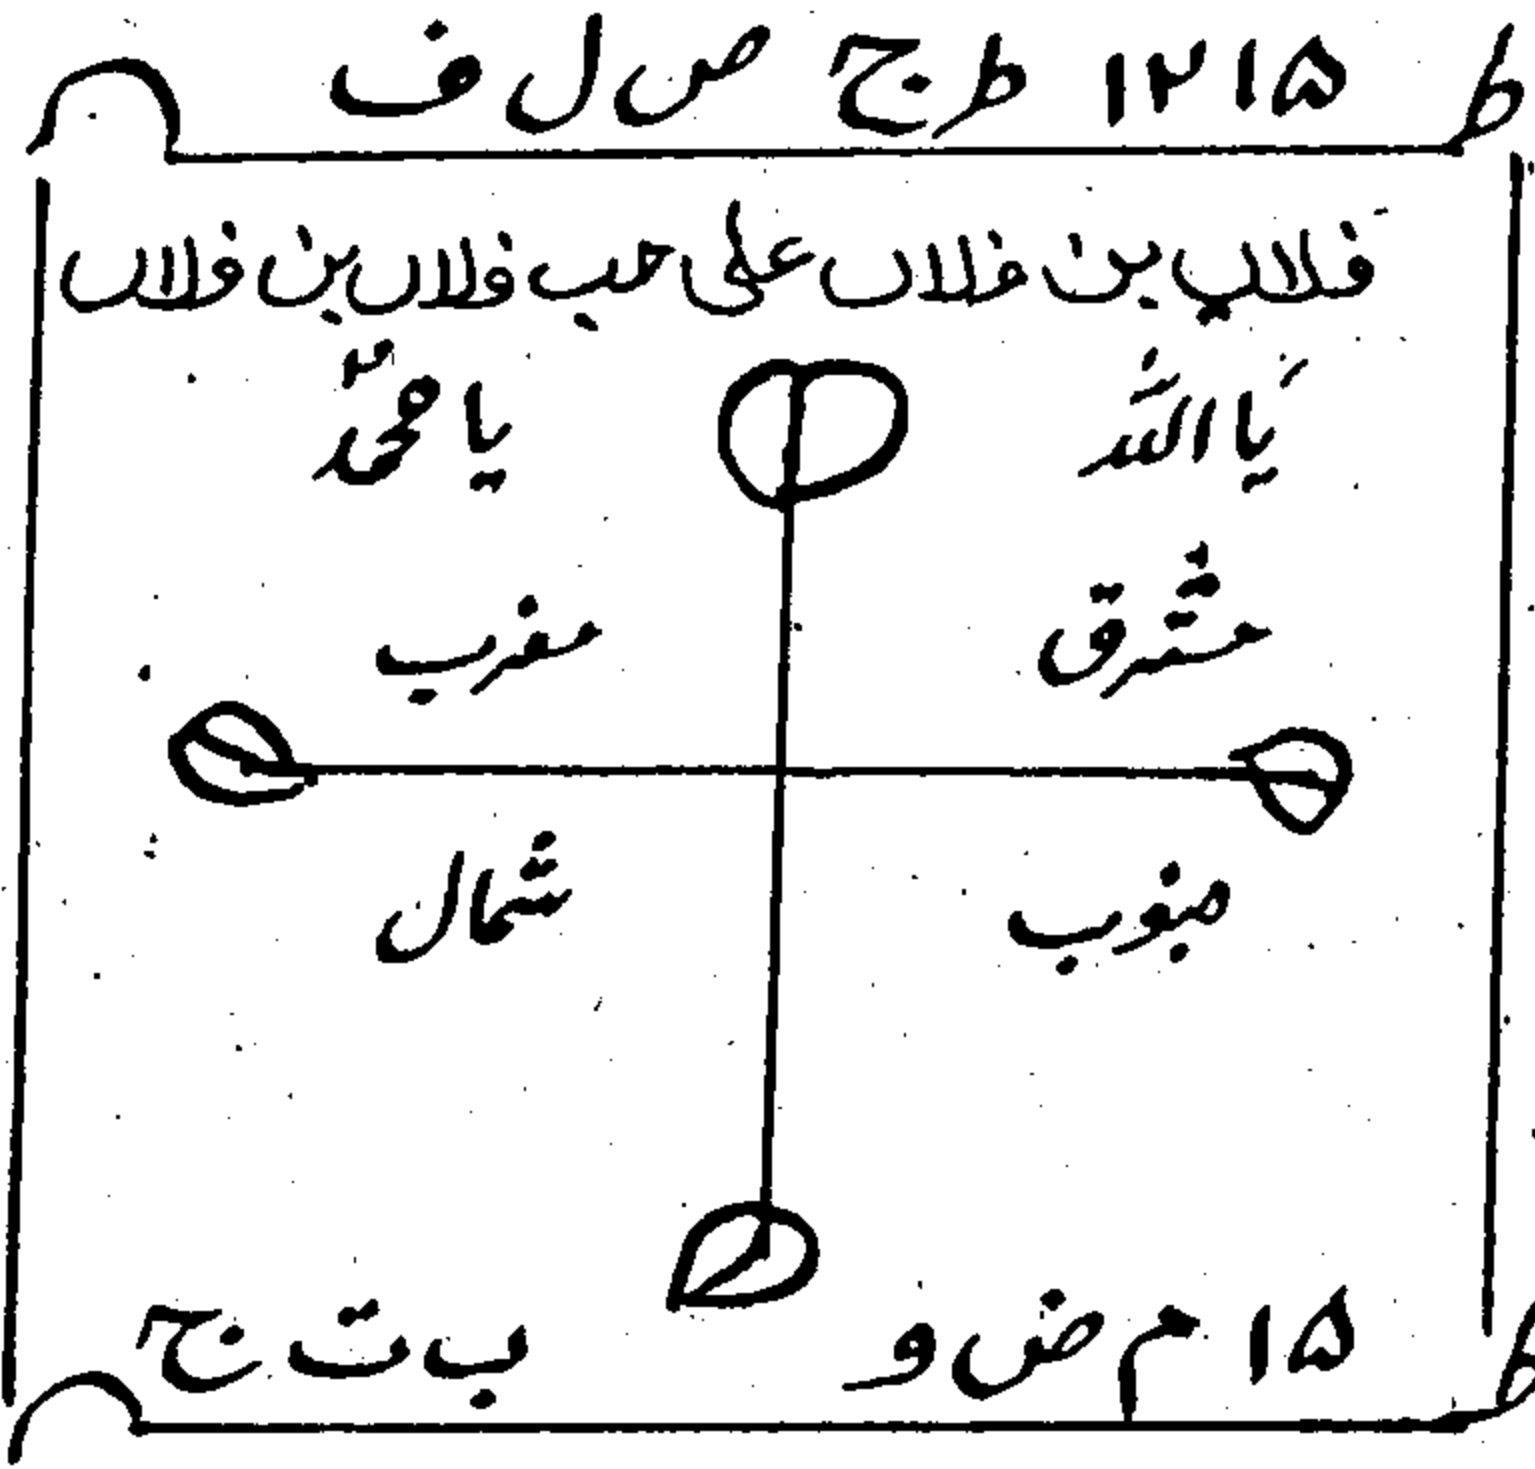 ط ۱۲۱۵ ط ج ص ل ف
فلاں بن فلاں علی حب فلاں بن فلاں
یا اللہ یا محمدؐ
مشرق مغرب
جنوب شمال
۱۵ م ض و ب ت ج